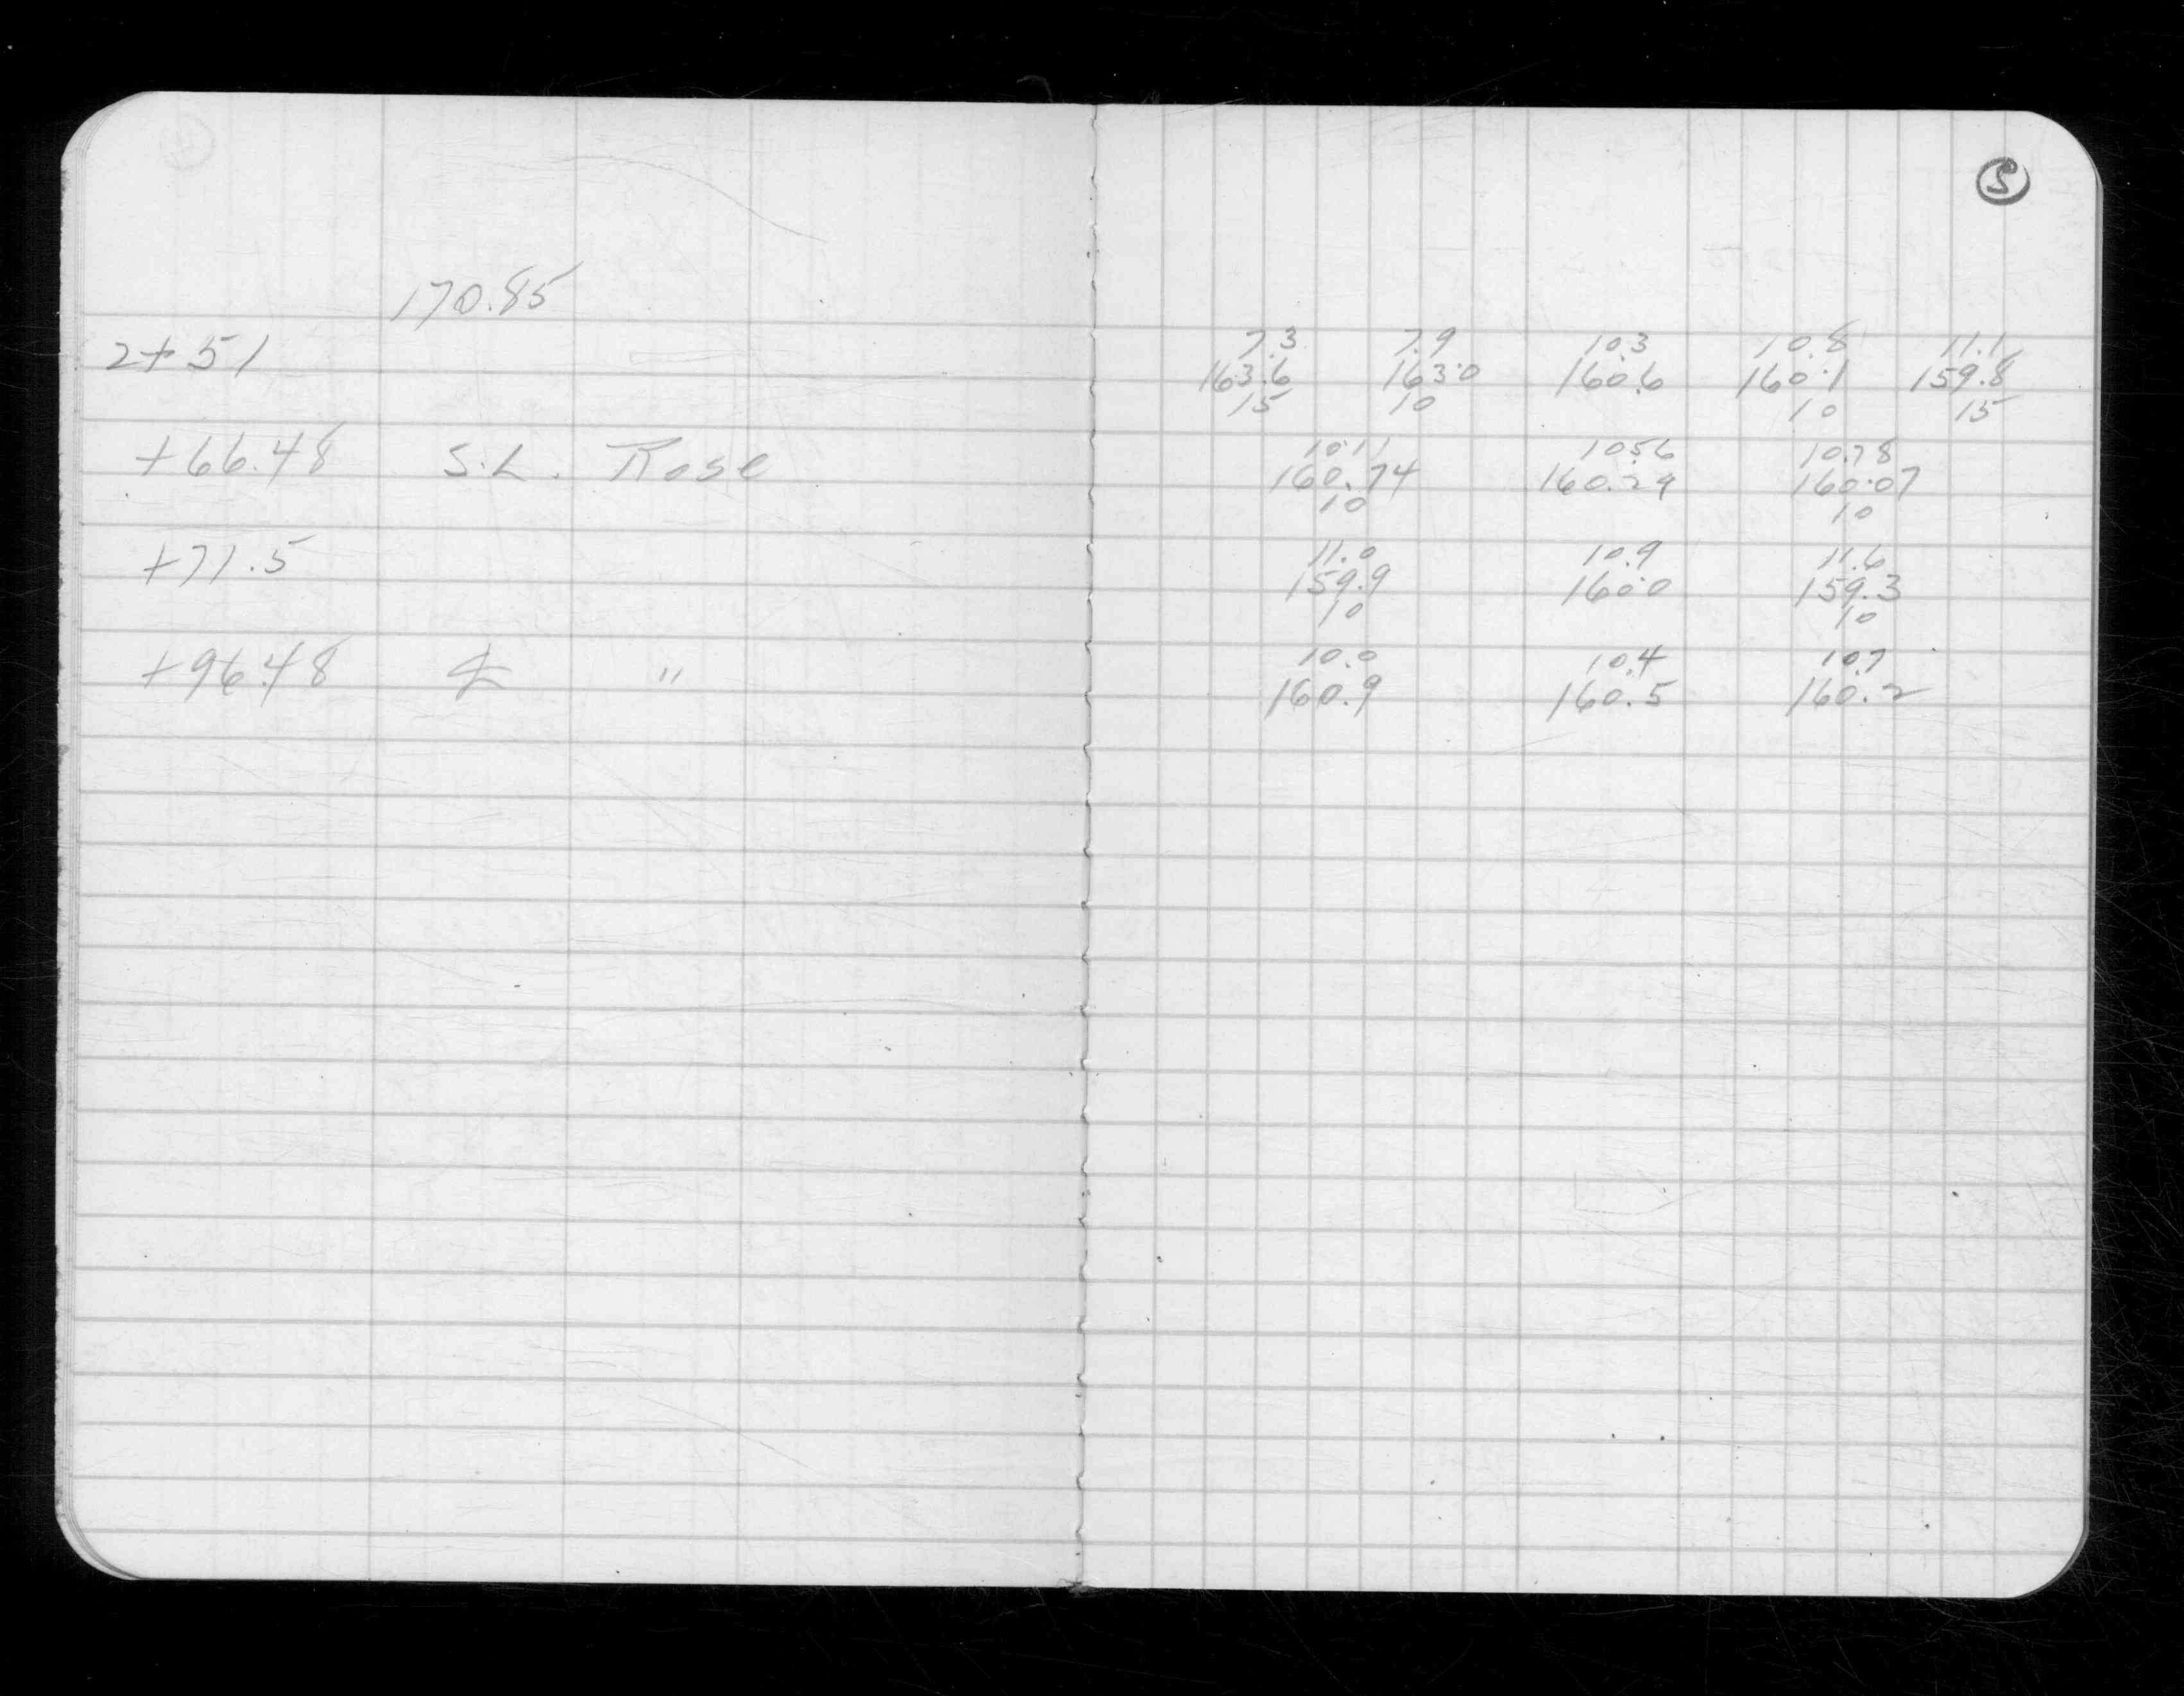 5
170.85
2+51
7.3 7.9 10.3 10.8 11.1
163.6 163.0 160.6 160.1 159.8
15 10 10 15
+66.48 S.L. Rose
10.11 10.56 10.78
160.74 160.29 160.07
10 10
+71.5
11.0 10.9 11.6
159.9 160.0 159.3
10 10
+96.48 ℄ "
10.0 10.4 10.7
160.9 160.5 160.2